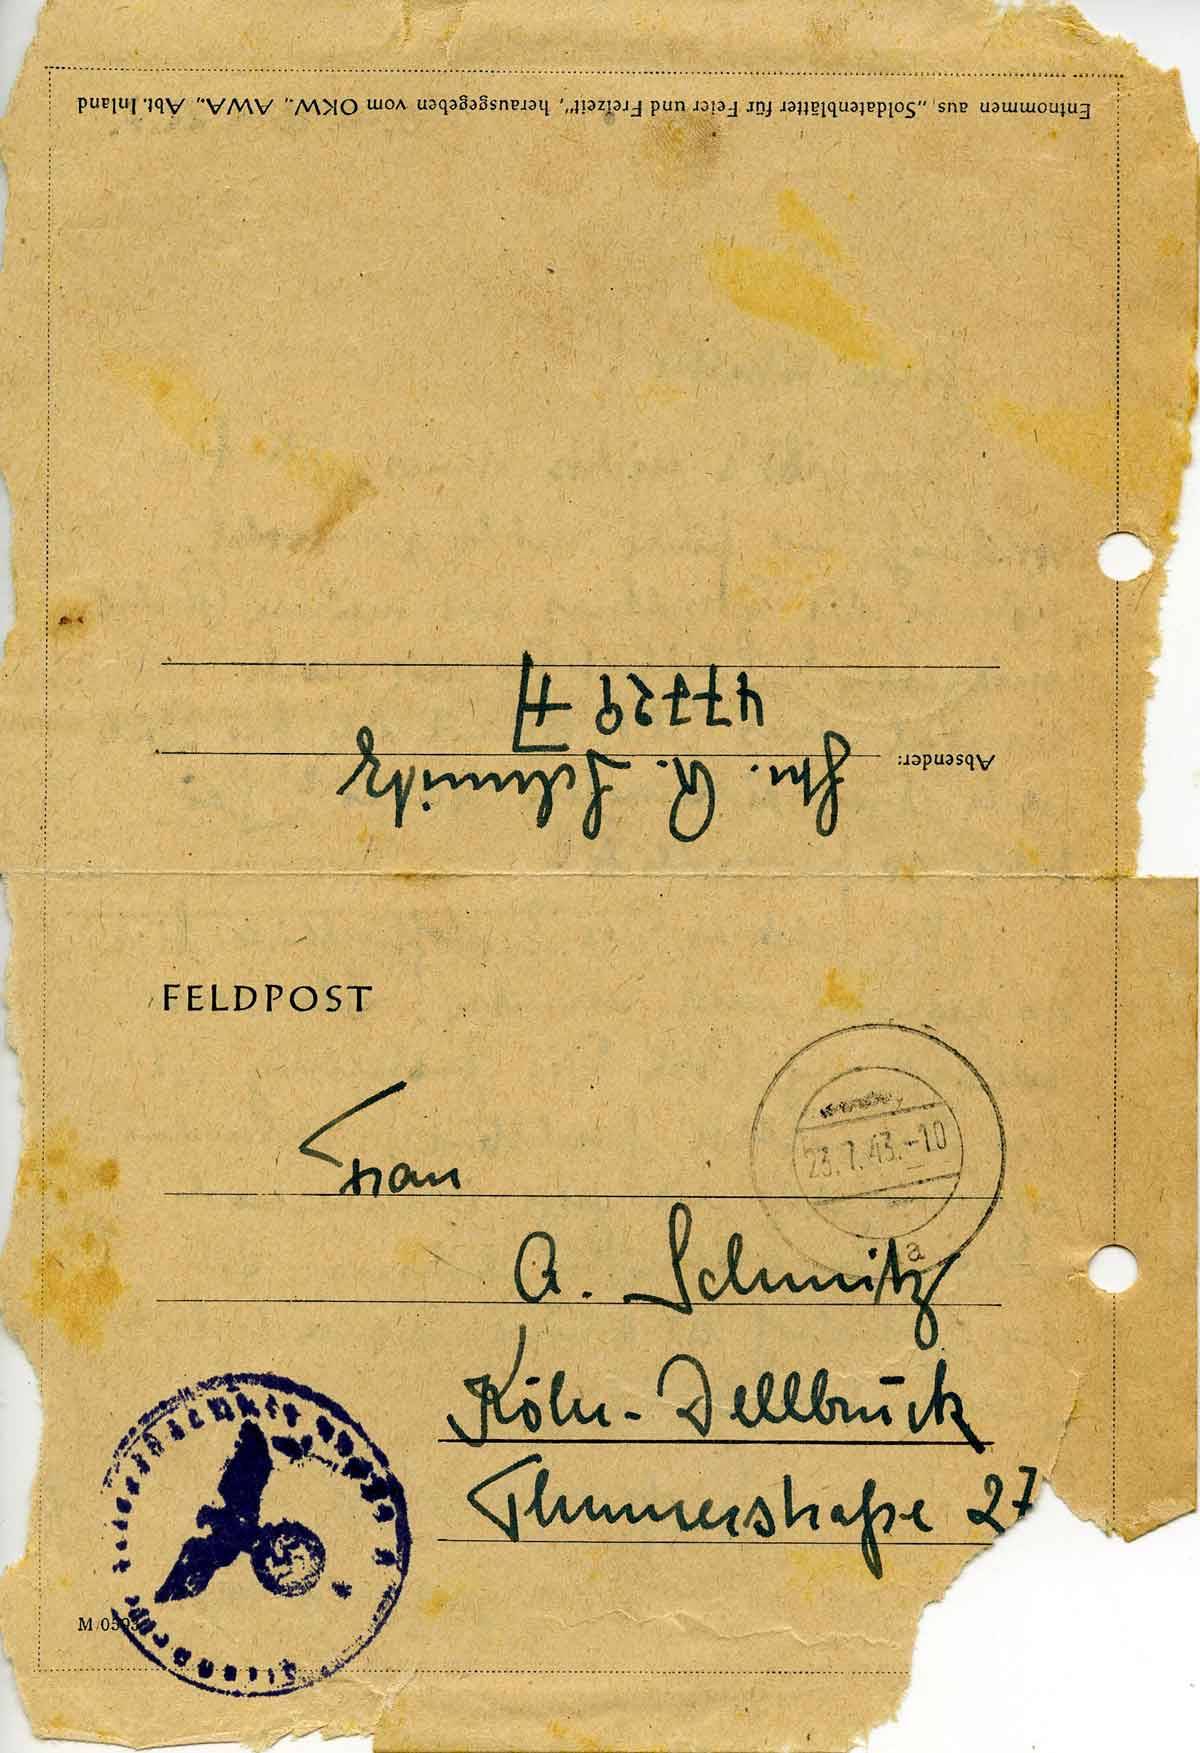 Entnommen aus „Soldatenblätter für Feier und Freizeit", herausgegeben vom OKW., AWA., Abt. Inland
Absender: A. Schmitz
47729 A
FELDPOST
Frau
23.7.43.-10
a
A. Schmitz
Köln-Dellbrück
Thurnerstraße 27
M/0593